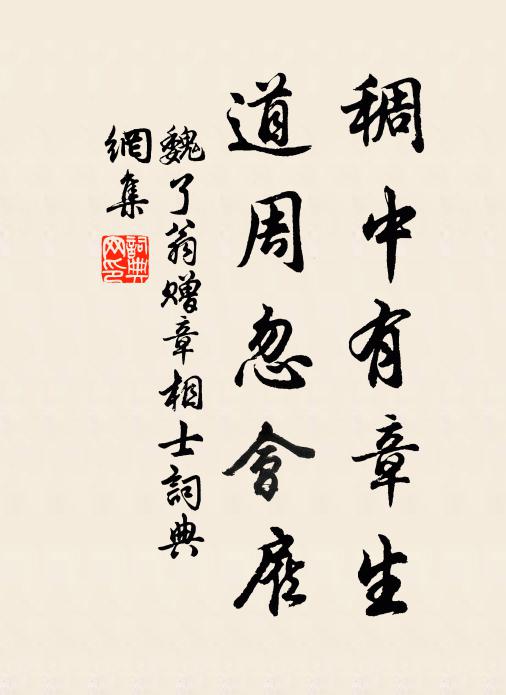 稠中有章生
道周忽會庭
魏了翁贈章相士詞典
網集
詞典
网印